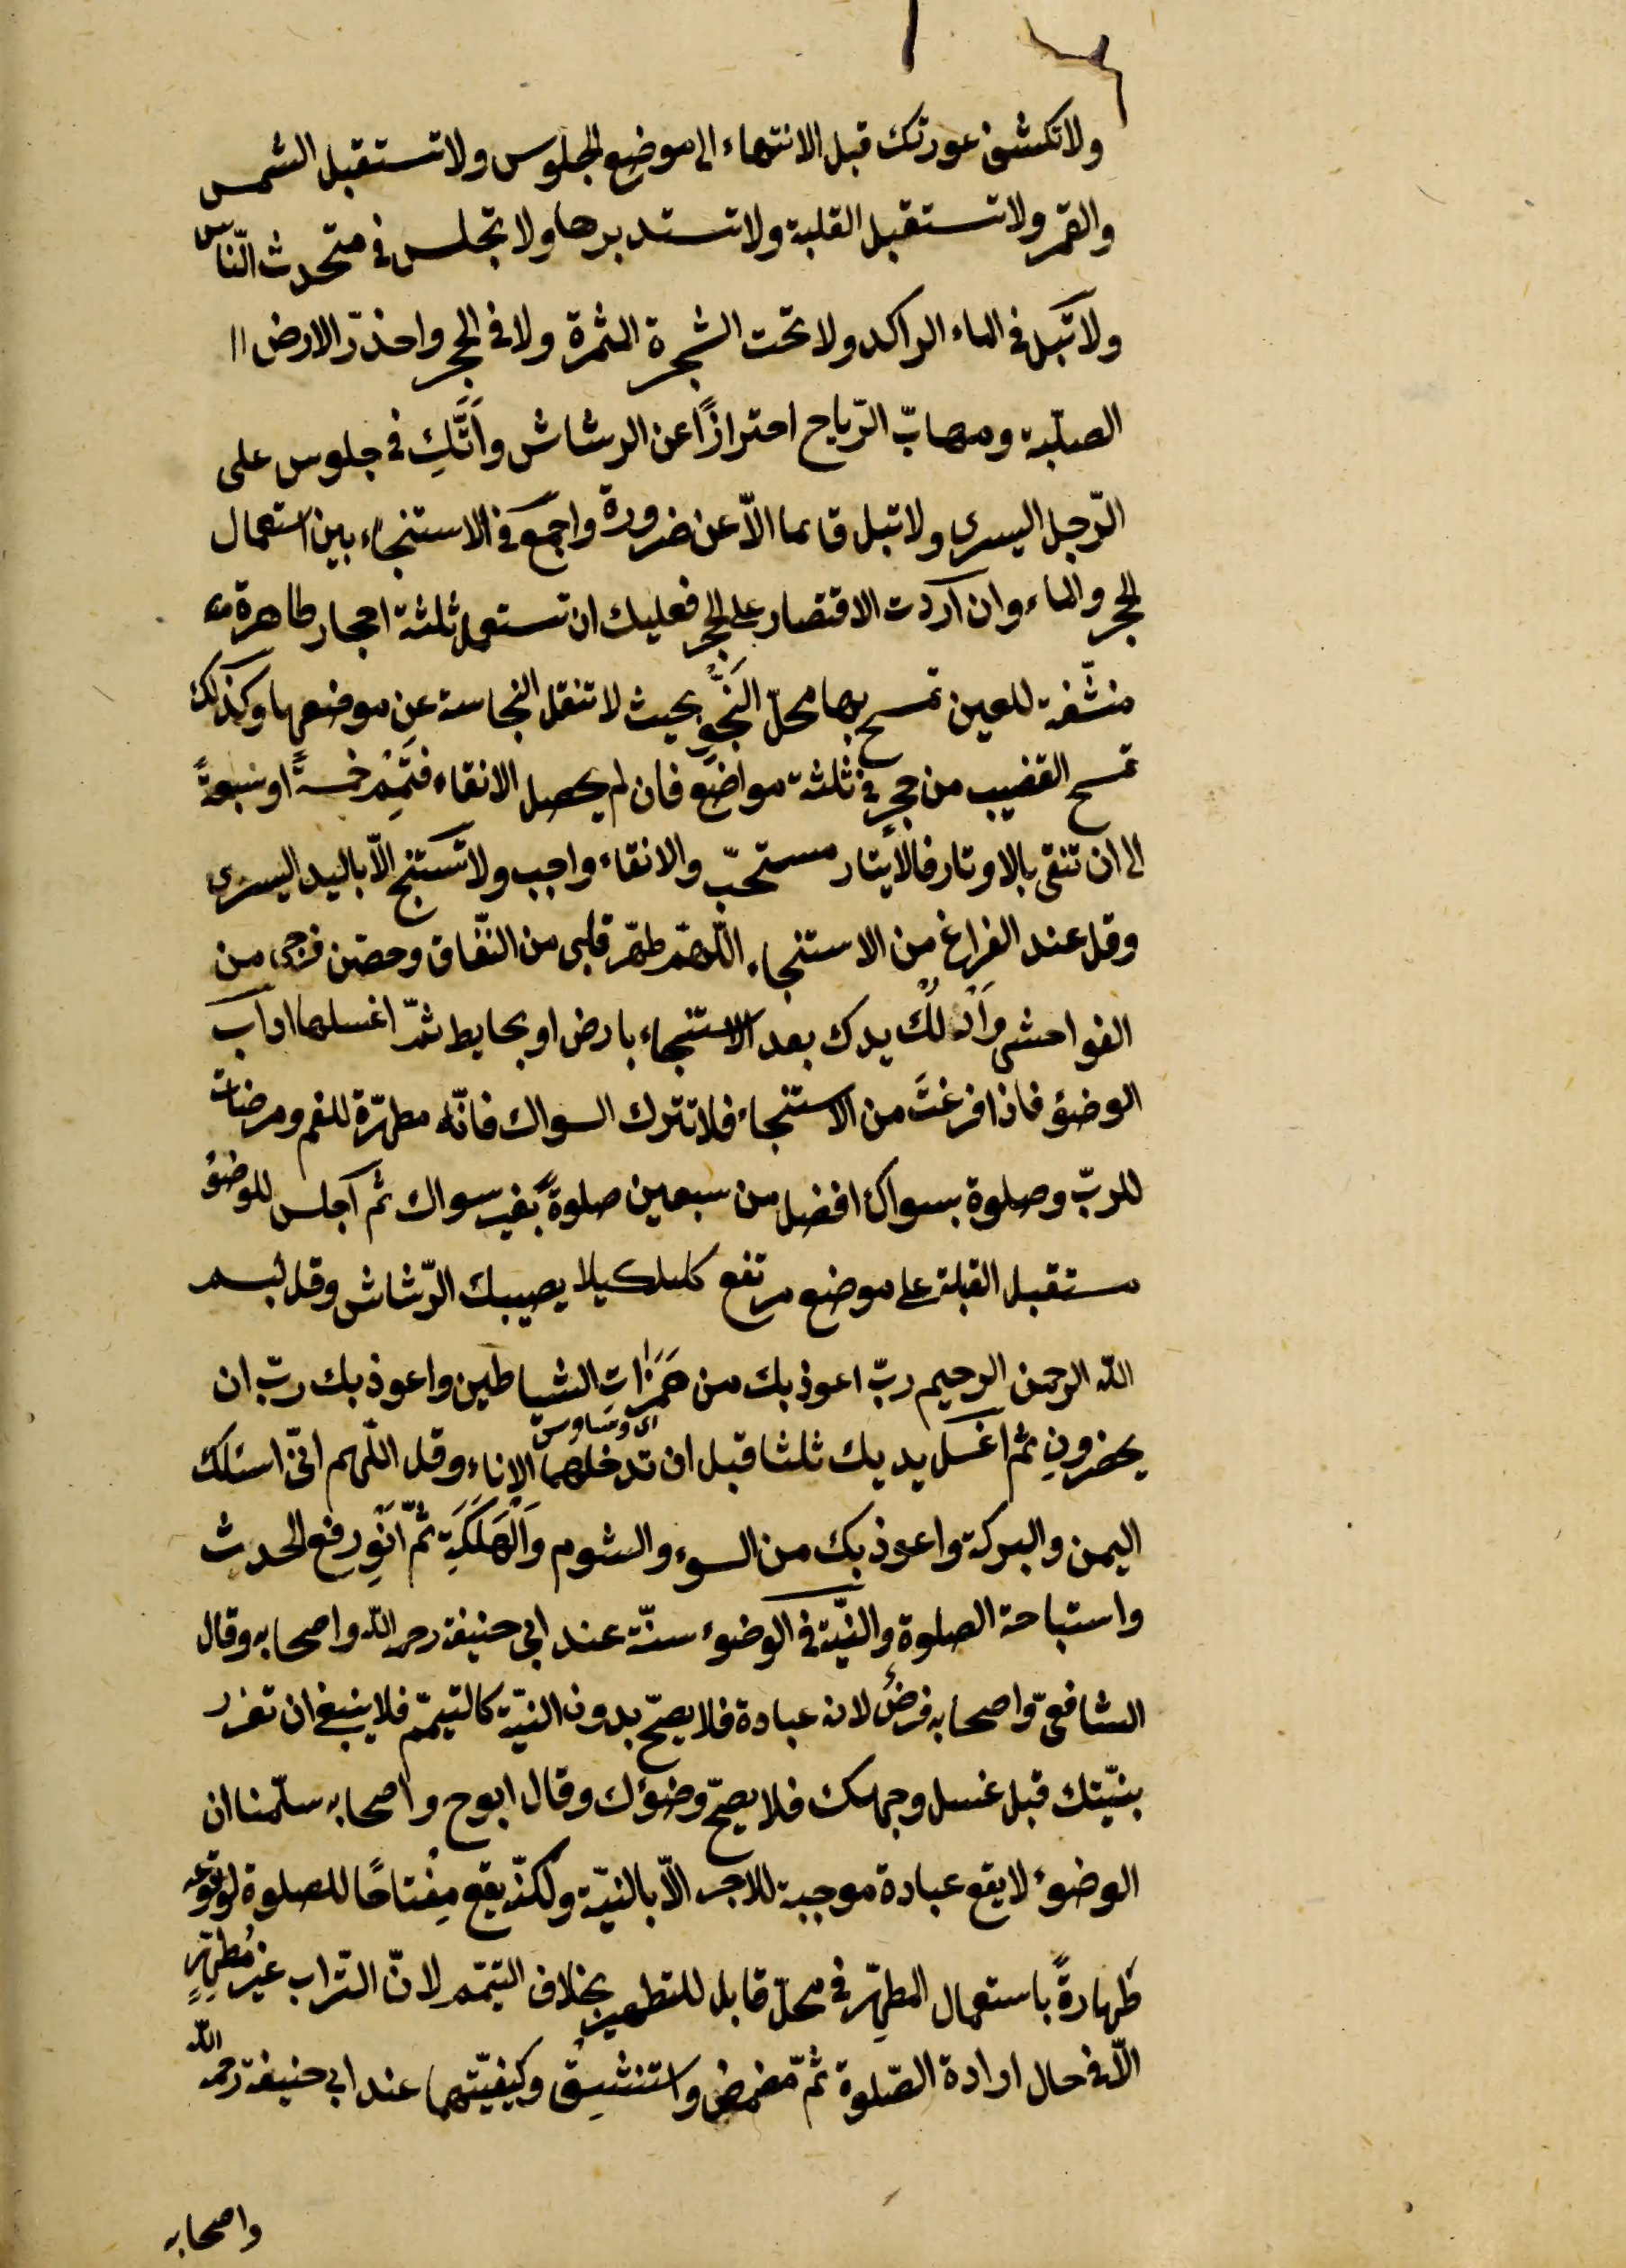 ولا تكشف عورتك قبل الانتهاء الى موضع الجلوس ولا تستقبل الشمس
والقمر ولا تستقبل القلبة ولا تستدبرها ولا تجلس في متحدث النّاس
ولا تبل في الماء الراكد ولا تحت الشجرة المثمرة ولا في الجحر واحذر الارض
الصلبة ومهابّ الرّياح احترازًا عن الرشاش واتَّكِ في جلوس على
الرّجل اليسرى ولا تبل قائما الاّ عن ضرورة واجمع في الاستنجاء بين استعمال
الحجر والماء وان اردت الاقتصار على الحجر فعليك ان تستعمل ثلثة احجار طاهرة
منشّفة للعين تمسح بها محلّ النَّجْوِ بحيث لا تنقل النجاسة عن موضعها وكذلك
تمسح القضيب من حجر في ثلثة مواضع فان لم يحصل الانقاء فتمّم خمسةً او سبعةً
الى ان تنقى بالاوتار فالايتار مستحبّ والانقاء واجب ولا تستنج الاّ باليد اليسرى
وقل عند الفراغ من الاستنجاء اللّهمّ طهّر قلبى من النّفاق وحصّن فرجى من
الفواحش وَادْلُكْ يدك بعد الاستنجاء بارض او بحايط ثمّ اغسلها اداب
الوضوٴ فاذا فرغتَ من الاستنجاء فلا تترك السواك فانّه مطهّرة للفم ومرضات
للربّ وصلوة بسواك افضل من سبعين صلوةً بغير سواك ثم اجلس للوضوٴ
مستقبل القبلة على موضع مرتفع كيلا يصيبك الرّشاش وقل بسم
الله الرحمن الرحيم ربّ اعوذ بك من هَمَزَاتِ الشياطين واعوذ بك ربّ ان
اى وساوس
يحضرونِ ثم اغسل يديك ثلثا قبل ان تدخلهما الاناء وقل اللّهم انّى اسئلك
اليمن والبركة واعوذ بك من السوء والشوم وَالْهَلَكَةِ ثمّ انْوِ رفع الحدث
واستباحة الصلوة والنّيّة في الوضوء سنّة عند ابى حنيفة رحمه الله واصحابه وقال
الشافعىّ واصحابه فرضٌ لانه عبادة فلا يصحّ بدون النيّة كالتيمّم فلا ينبغى ان تعزر
بنيّتك قبل غسل وجهك فلا يصحّ وضوٴك وقال ابوح واصحابه سلّمنا ان
الوضوٴ لا يقع عبادة موجبة للاجر الاّ بالنيّة ولكنّه يقع مِفْتاحًا للصلوة لوقوعه
طَهارةً باستعمال المطهّر في محلّ قابل للتطهير بخلاف التيمّم لانّ التّراب غيرُ مُطهِّرٍ
الاّ في حال ارادة الصّلوة ثمّ تمضمض واستنشِق وكيفيّتهما عند ابى حنيفة رحمه الله
واصحابه